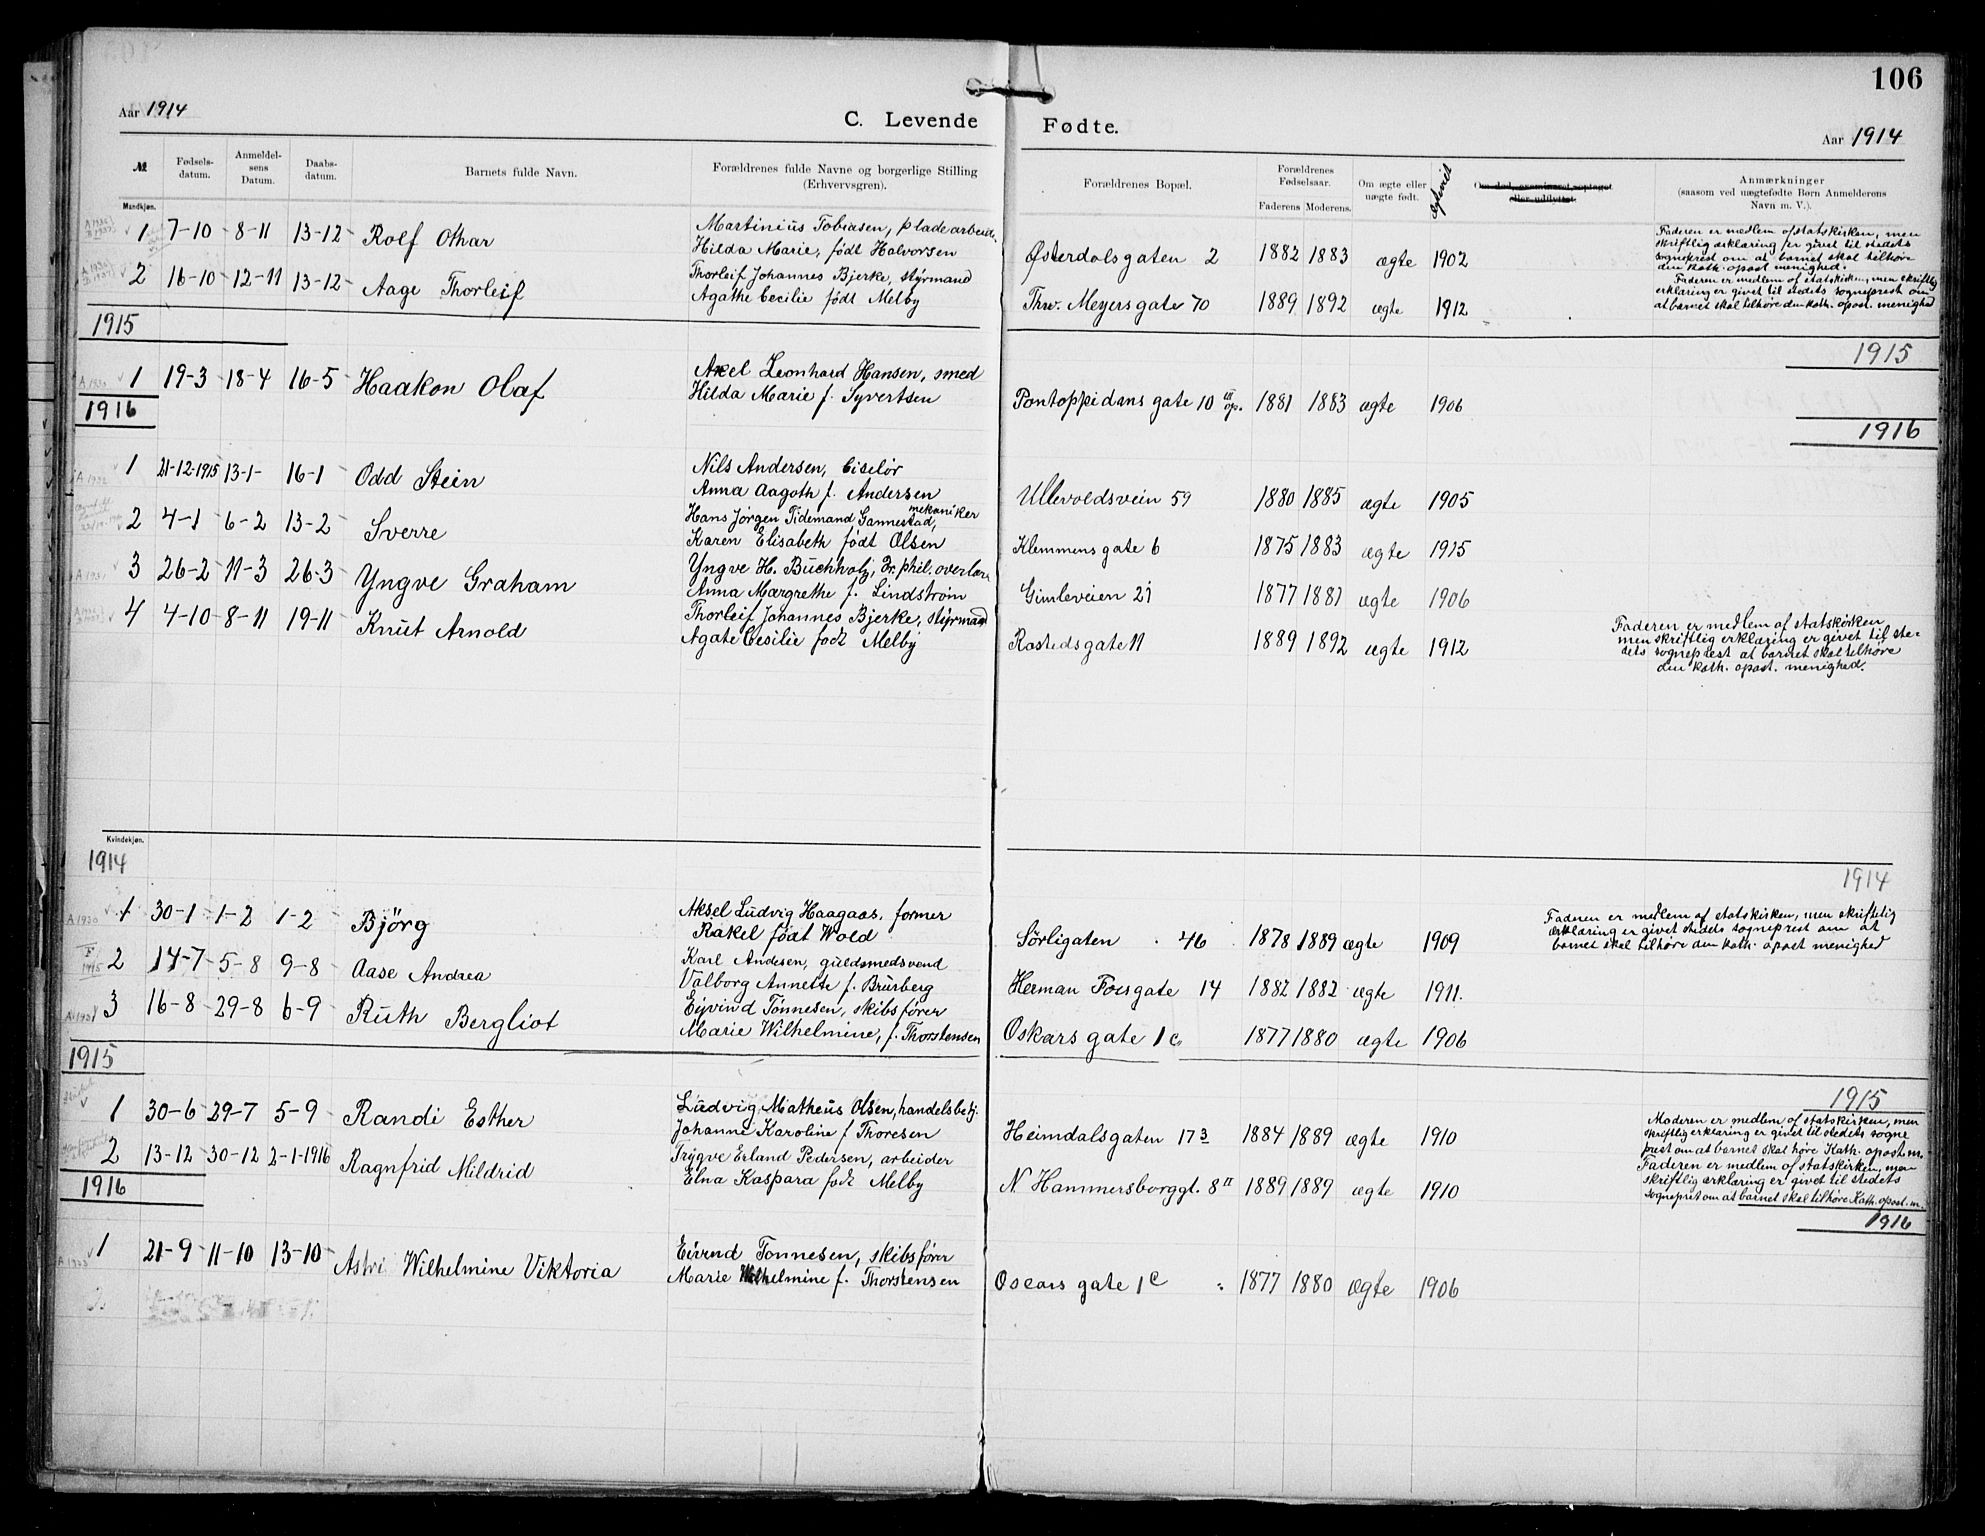 106
Aar 1914
C. Levende Fødte.
Aar 1914
№ Fødsels-datum. Anmeldel-sens Datum. Daabs-datum. Barnets fulde Navn. Forældrenes fulde Navne og borgerlige Stilling (Erhvervsgren). Forældrenes Bopæl. Forældrenes Fødselsaar. Faderens Moderens. Om ægte eller uægte født. Anmærkninger (saasom ved uægtefødte Børn Anmelderens Navn m. V.).
Mandkjøn.
1 7-10 8-11 13-12 Rolf Othar Martinius Tobiasen, pladearbeid.
Hilda Marie, født Halvorsen
Østerdalsgaten 2 1882 1883 ægte 1902
Faderen er medlem af statskirken, men
skriftlig erklæring er givet til stedets
sogneprest om at barnet skal tilhøre
den kath. apost. menighed.
2 16-10 12-11 13-12 Aage Thorleif Thorleif Johannes Bjerke, styrmand
Agathe Cecilie født Melby
Thrv. Meyersgate 70 1889 1892 ægte 1912
Faderen er medlem af statskirken, men skriftlig
erklæring er givet til stedets sogneprest om
at barnet skal tilhøre den kath. apost. menighed
1915
1915
1 19-3 18-4 16-5 Haakon Olaf Axel Leonhard Hansen, smed
Hilda Marie f. Syvertsen
Pontoppidans gate 10 III op. 1881 1883 ægte 1906
1916
1916
1 21-12-1915 13-1- 16-1 Odd Stein Nils Andersen, Ciselør
Anna Aagoth f. Andersen
Ullevoldsvein 59 1880 1885 ægte 1905
2 4-1 6-2 13-2 Sverre Hans Jørgen Tidemand Gannestad, mekaniker
Karen Elisabeth født Olsen
Klemmensgate 6 1875 1883 ægte 1915
3 26-2 11-3 26-3 Yngve Graham Yngve H. Buchholz, Dr. phil. overlær.
Anna Margrethe f. Lindstrøm
Gimleveien 21 1877 1881 ægte 1906
4 4-10 8-11 19-11 Knut Arnold Thorleif Johannes Bjerke, styrmand
Agate Cesilie født Melby
Rostedsgate 11 1889 1892 ægte 1912
Faderen er medlem af statskirken,
men skriftlig erklæring er givet til ste-
dets sogneprest at barnet skal tilhøre
den kath. apost. menighed.
Kvindekjøn.
1914
1914
1 30-1 1-2 1-2 Bjørg Aksel Ludvig Haagaas, former
Rakel født Wold
Sørligaten 46 1878 1889 ægte 1909
Faderen er medlem af statskirken, men skriftelig
erklæring er givet stedets sogneprest om at
barnet skal tilhøre den kath. apost menighed
2 14-7 5-8 9-8 Aase Andrea Karl Andesen, guldsmedsvend
Valborg Annette f. Brurberg
Herman Fossgate 14 1882 1882 ægte 1911.
3 16-8 29-8 6-9 Ruth Bergliot Eyvind Tønnesen, skibsfører
Marie Wilhelmine, f. Thorstensen
Oskars gate 1c 1877 1880 ægte 1906
1915
1915
1 30-6 29-7 5-9 Randi Esther Ludvig Matheus Olsen, handelsbetj.
Johanne Karoline f Thoresen
Heimdalsgaten 17 3 1884 1889 ægte 1910
Moderen er medlem of statskirken, men
skriftlig erklæring er givet til stedets sogne
prest om at barnet skal høre Kath. apost. m.
2 13-12 30-12 2-1-1916 Ragnfrid Mildrid Trygve Erland Pedersen, arbeider
Elna Kaspara født Melby
N. Hammersborggt. 8 II 1889 1889 ægte 1910
Faderen er medlem of statskirken, men
skriftlig erklæring er givet til stedets
sognepret om at barnet skal tilhøre Kath. apost. m.
1916
1916
1 21-9 11-10 13-10 Astri Wilhelmine Viktoria Eivind Tønnesen, skibsfører
Marie Wilhelmine f. Thorstensen
Oscars gate 1c 1877 1880 ægte 1906